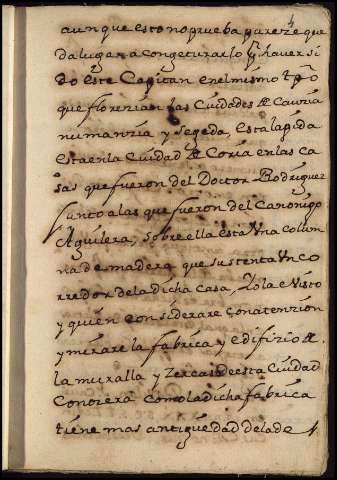 aunque esto no prueba pareze que
da lugar a congeturarlo q̃ haver si
do este Capitan en el mismo tpõ
que florezian las Ciudades de Cauzia
numanzia y segeda, esta lapida
esta en la Ciudad de Coria en las ca
sas que fueron del Doctor Rodriguez
junto a las que fueron del Canonigo
Aguilera, sobre ella esta vna colum
na de madera que sustenta vn co
rredor de la dicha casa, Yo la e visto
y quien considerare con atenzion
y mirare la fabrica y edifizio de
la muralla y zercas de esta Ciudad
Conozera como la dicha fabrica
tiene mas antiguedad de la de